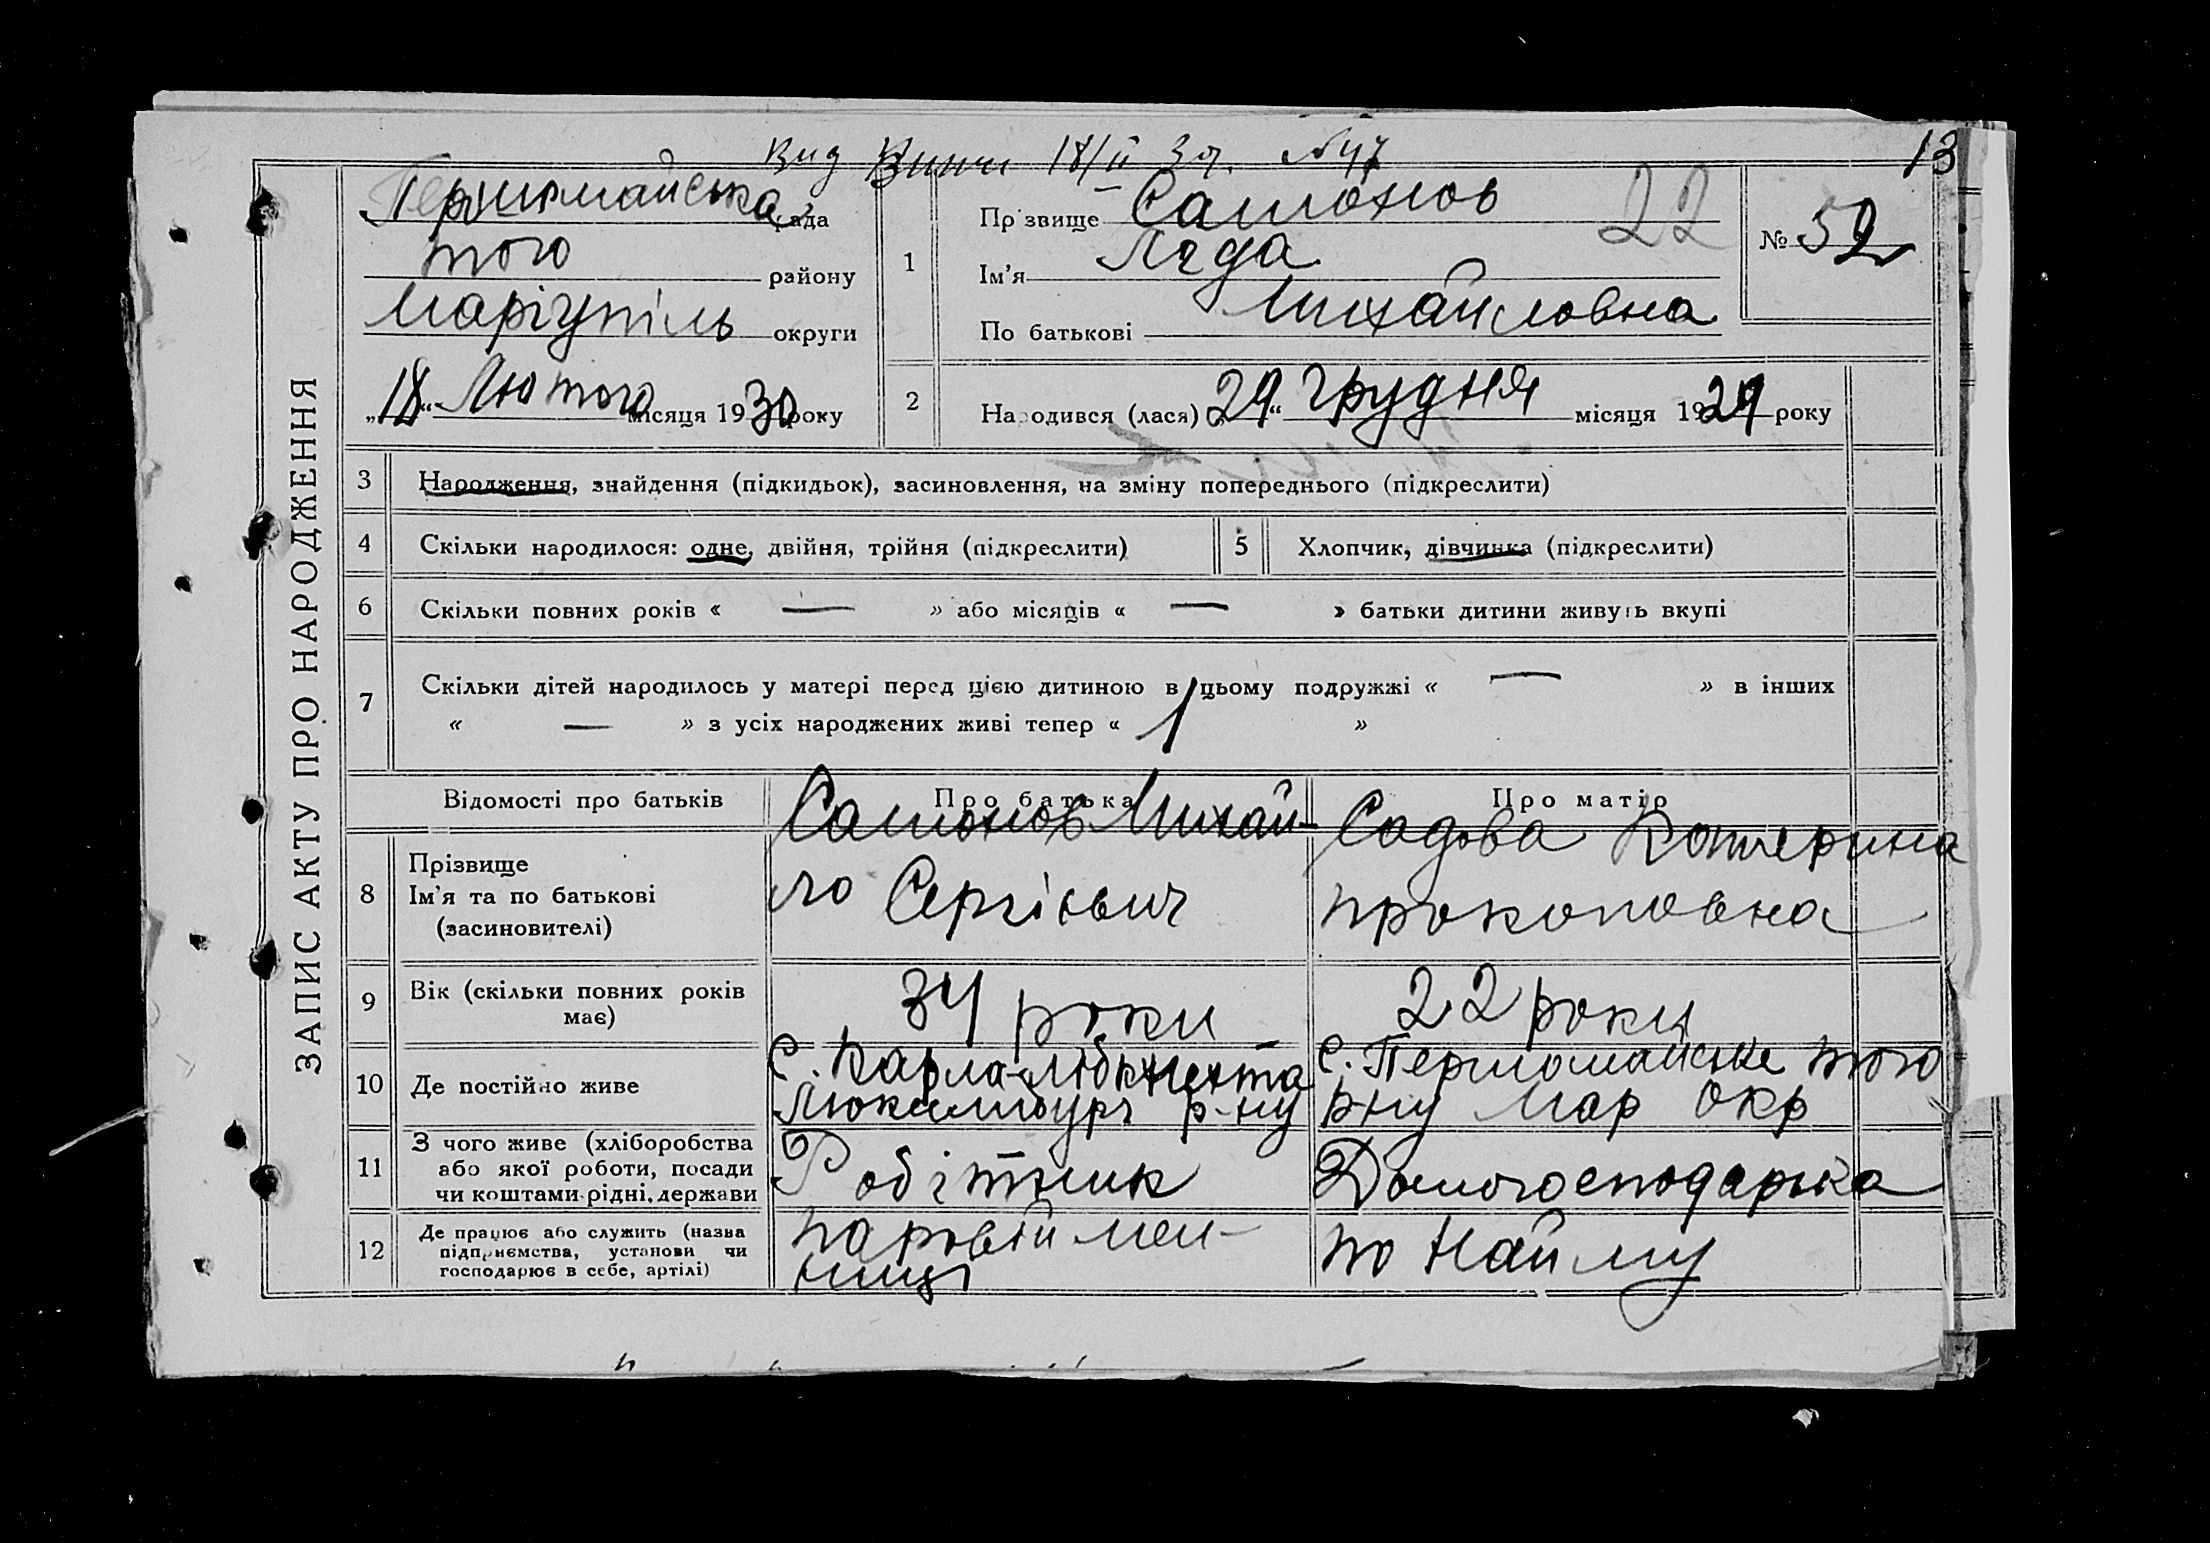 Вид Випи 18/II 30г. №47
13
ЗАПИС АКТУ ПРО НАРОДЖЕННЯ
Першомайська рада
того району
Маріупіль округи
„18“ Лютого місяця 1930 року
1
Прізвище Самонов
22
Ім’я Ліда
По батькові Михайловна
№ 52
2
Народився (лася) „29“ грудня місяця 1929 року
3 Народження, знайдення (підкидьок), засиновлення, на зміну попереднього (підкреслити)
4 Скільки народилося: одне, двійня, трійня (підкреслити)
5 Хлопчик, дівчинка (підкреслити)
6 Скільки повних років « — » або місяців « — » батьки дитини живуть вкупі
7 Скільки дітей народилось у матері перед цією дитиною в цьому подружжі « — » в інших
« — » з усіх народжених живі тепер « 1 »
Відомості про батьків
Про батька
Про матір
8
Прізвище
Ім’я та по батькові
(засиновителі)
Самонов Михай-
ло Сергієвич
Садова Катерина
Прокоповна
9
Вік (скільки повних років
має)
34 роки
22 роки
10 Де постійно живе
С. Карла-Лібкнехта
Люксембург р-ну
С. Першомайське того
р-ну Мар Окр
11
З чого живе (хліборобства
або якої роботи, посади
чи коштами рідні, держави
Робітник
Домогосподарка
12
Де працює або служить (назва
підприємства, установи чи
господарює в себе, артілі)
паровій мли-
ниці
по найму